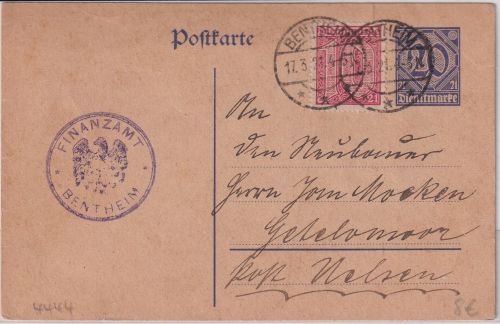 Postkarte
BENTHEIM
17.3.21.4-5N
BENTHEIM
20
21
Dienstmarke
21
FINANZAMT
BENTHEIM
An
den Neubauer
Herrn Jom Mocken
Getelomoor
Post Uelsen
4444
8€